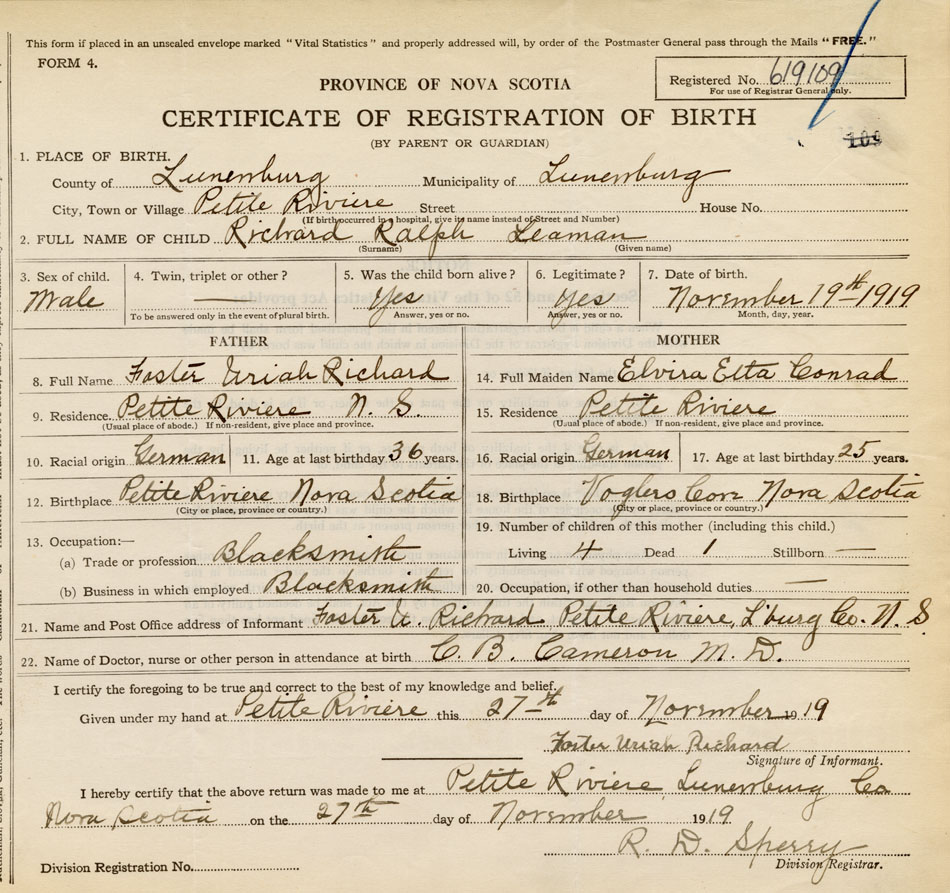 This form if placed in an unsealed envelope marked "Vital Statistics" and properly addressed will, by order of the Postmaster General pass through the Mails "FREE."
FORM 4.
Registered No. 619109
For use of Registrar General only.
PROVINCE OF NOVA SCOTIA
CERTIFICATE OF REGISTRATION OF BIRTH
109
(BY PARENT OR GUARDIAN)
1. PLACE OF BIRTH.
County of Lunenburg Municipality of Lunenburg
City, Town or Village Petite Riviere Street House No.
(If birth occurred in hospital, give its name instead of Street and Number)
2. FULL NAME OF CHILD Richard Ralph Leaman
(Surname) (Given name)
3. Sex of child. 4. Twin, triplet or other? 5. Was the child born alive? 6. Legitimate? 7. Date of birth.
Male — Yes Yes November 19th 1919
To be answered only in the event of plural birth. Answer, yes or no. Answer, yes or no. Month, day, year.
FATHER MOTHER
8. Full Name Foster Uriah Richard 14. Full Maiden Name Elvira Etta Conrad
9. Residence. Petite Riviere N. S. 15. Residence Petite Riviere
(Usual place of abode.) If non-resident, give place and province. (Usual place of abode.) If non-resident, give place and province.
10. Racial origin German 11. Age at last birthday 36 years. 16. Racial origin German 17. Age at last birthday 25 years.
12. Birthplace Petite Riviere Nova Scotia 18. Birthplace Voglers Cove Nova Scotia
(City or place, province or country.) (City or place, province or country.)
13. Occupation:— 19. Number of children of this mother (including this child.)
(a) Trade or profession Blacksmith Living 4 Dead 1 Stillborn —
(b) Business in which employed Blacksmith 20. Occupation, if other than household duties. —
21. Name and Post Office address of Informant Foster U. Richard Petite Riviere, L'burg Co. N. S.
22. Name of Doctor, nurse or other person in attendance at birth C. B. Cameron M. D.
I certify the foregoing to be true and correct to the best of my knowledge and belief.
Given under my hand at Petite Riviere this 27th day of November 1919
Foster Uriah Richard
Signature of Informant.
I hereby certify that the above return was made to me at Petite Riviere, Lunenburg Co
Nova Scotia on the 27th day of November 1919.
R. D. Sperry
Division Registrar.
Division Registration No.